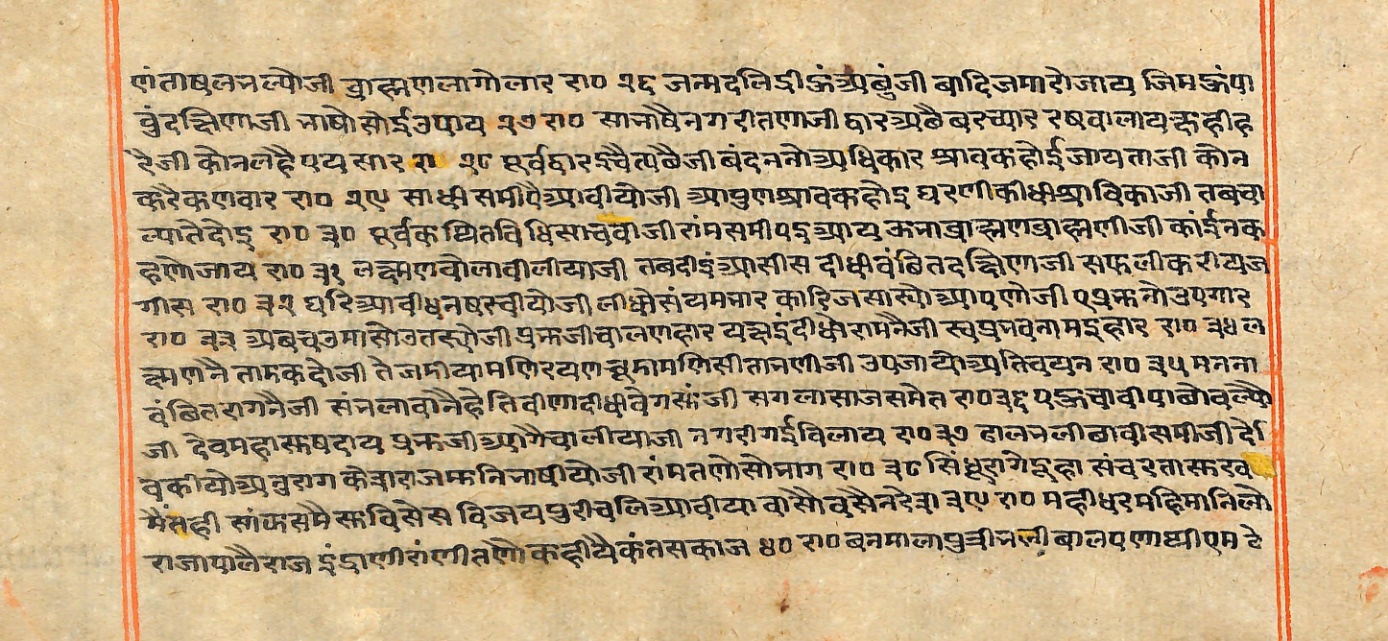 णंताषलनल्योजी ब्राह्मणलागोलार रा० २६ जन्मदलिद्रीऊंअबुंजी बादिजमारोजाय जिमऊंपा
वुंदक्षिणाजी भाषोसोईउपाय २७ रा० साभाषैनगरीतणाजी द्वारअछैबरच्यार रषवालायक्षहीह
रैजी कोनलहैपयसार रा० २८ पूर्वद्वारइचैत्यछैजी बंदननोअधिकार श्रावकहोईजायताजी कोन
करैकणवार रा० २९ साधीसमीपैआवीयोजी आपुणश्रावकहोइ घरणीकीधीश्राविकाजी तबचा
ल्यातेदोइ रा० ३० पूर्वकथितविधिसाचवाजी रांमसमीपइआय कनाब्राह्मणब्राह्मणीजी कांईनक
हणोजाय रा० ३१ लक्ष्मणबोलावीलीयाजी तबदीइंआसीस दीधीवंबितदक्षिणाजी सफलीकरीयज
गीस रा० ३२ घरिआवीधनषरचीयोजी लीधोसंयमभार कारिजसास्योआपणोजी एप्रभुनोउपगार
रा० ३३ अबचउमासोउतस्योजी प्रभुजीचालणहार यक्षइंदीधोरामनैजी स्वयंप्रभनामइहार रा० ३४ ल
क्ष्मणनै ताभकदोजी तेजमीयामणिरयण चूमामणिसीताभणीजी उपजायोअतिचयन रा० ३५ मनना
वंबितरागनैजी संभलावानैहेति वीणादीधीवेगसुंजी सगलासाजसमेत रा० ३६ पऊचावीपाबोवल्यौ
जी देवमहासुषदाय प्रभुजीआगैचालीयाजी नगरीगईविलाय रा० ३७ हालभलीठावीसमीजी देो
वकीयोअनुराग केशराजमुनिभाषीयोजी रांमतणोसोभाग रा० ३८ सिंधूरागेदुहा संचरतासुरव
मैंसही सांऊसमैसुविसेस विजयपुरीचलिआवीया वासौवसैनरेश ३९ रा० महीधरमहिमानिलौ
राजापालैराज इंद्राणीरांणीतणौ कहीयैकंतसकाज ४० रा० बनमालापुत्रीभली बालपणाथीएम टे